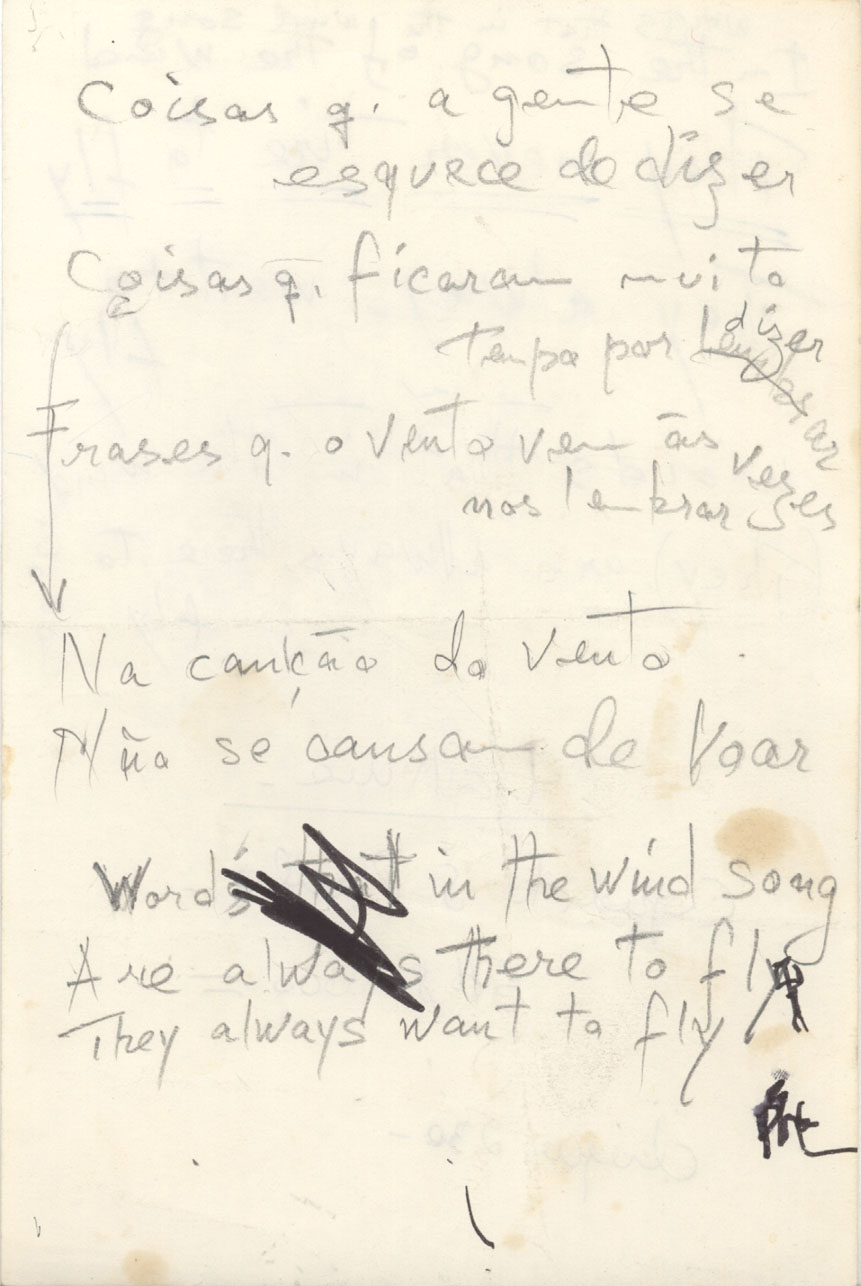 Coisas q. a gente se
esquece de dizer
Coisas q. ficaram muito
tempo por lembrar dizer
Frases q. o vento vem às vezes
nos lembrar
Na canção do vento
Não se cansam de voar
Words that in the wind song
Are always there to fly
They always want to fly